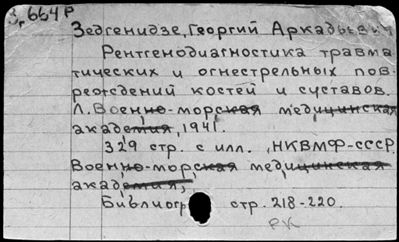 З, 664 Р
Зедгенидзе, Георгий Аркадьевич
Рентгенодиагностика травма
тических и огнестрельных пов-
реждений костей и суставов.
Л. Военно-морская медицинская
академия, 1941.
329 стр. с илл. , НКВМФ-СССР
Военно-морская медицинская
академия,
Библиогр стр. 218-220.
РК